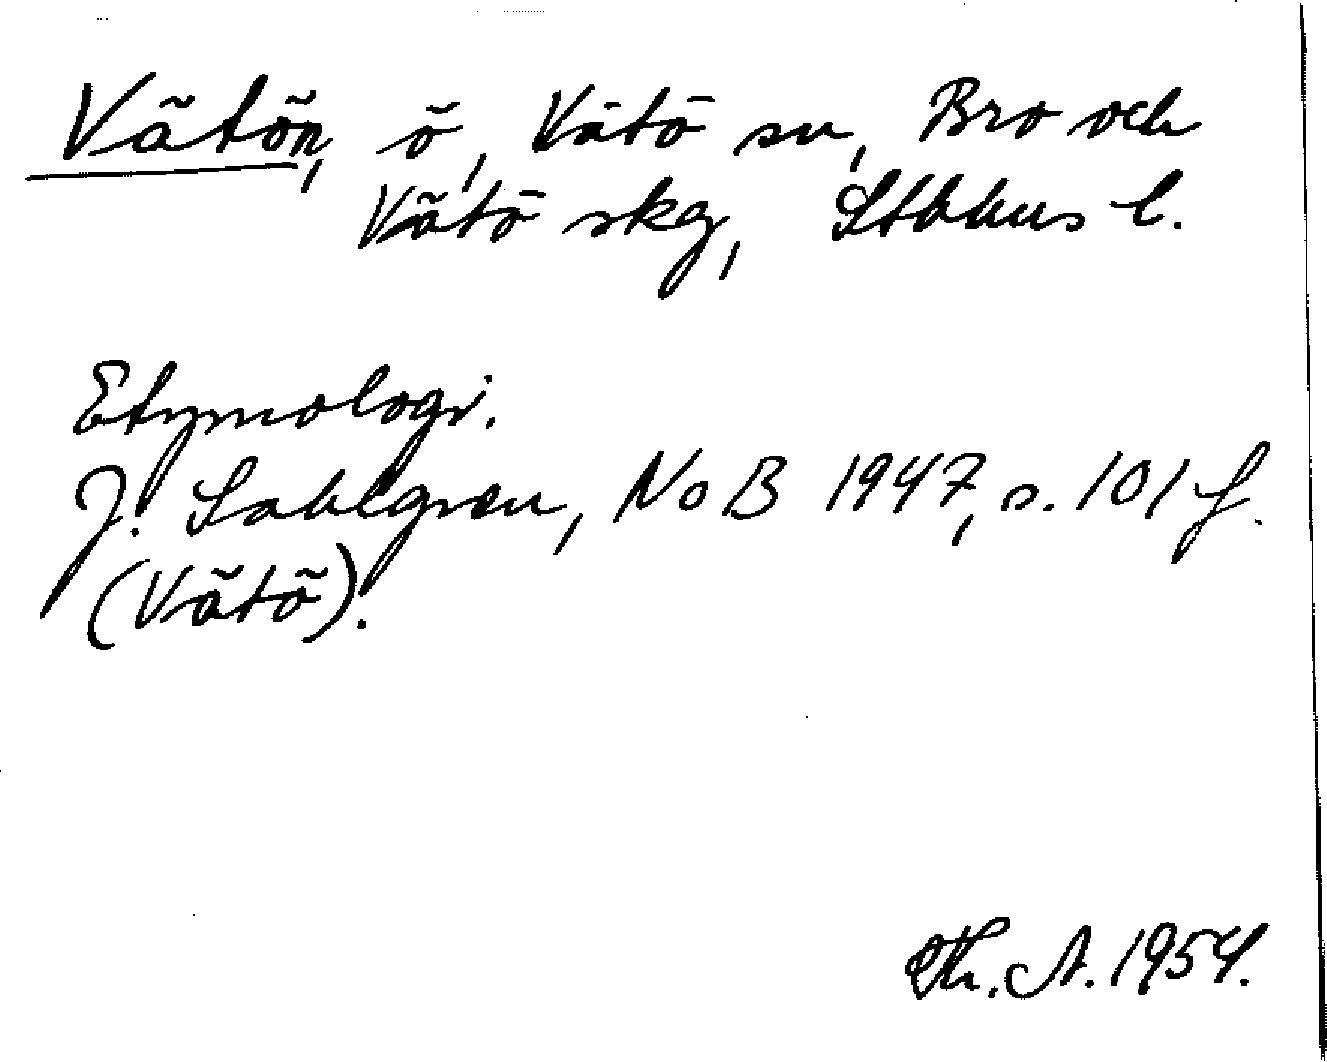 Vätön, ö, Vätö sn, Bro och
Vätö skg, Sthlms l.
Etymologi.
J. Sahlgren, NoB 1947, s. 101 f.
(Vätö).
Th. A. 1954.